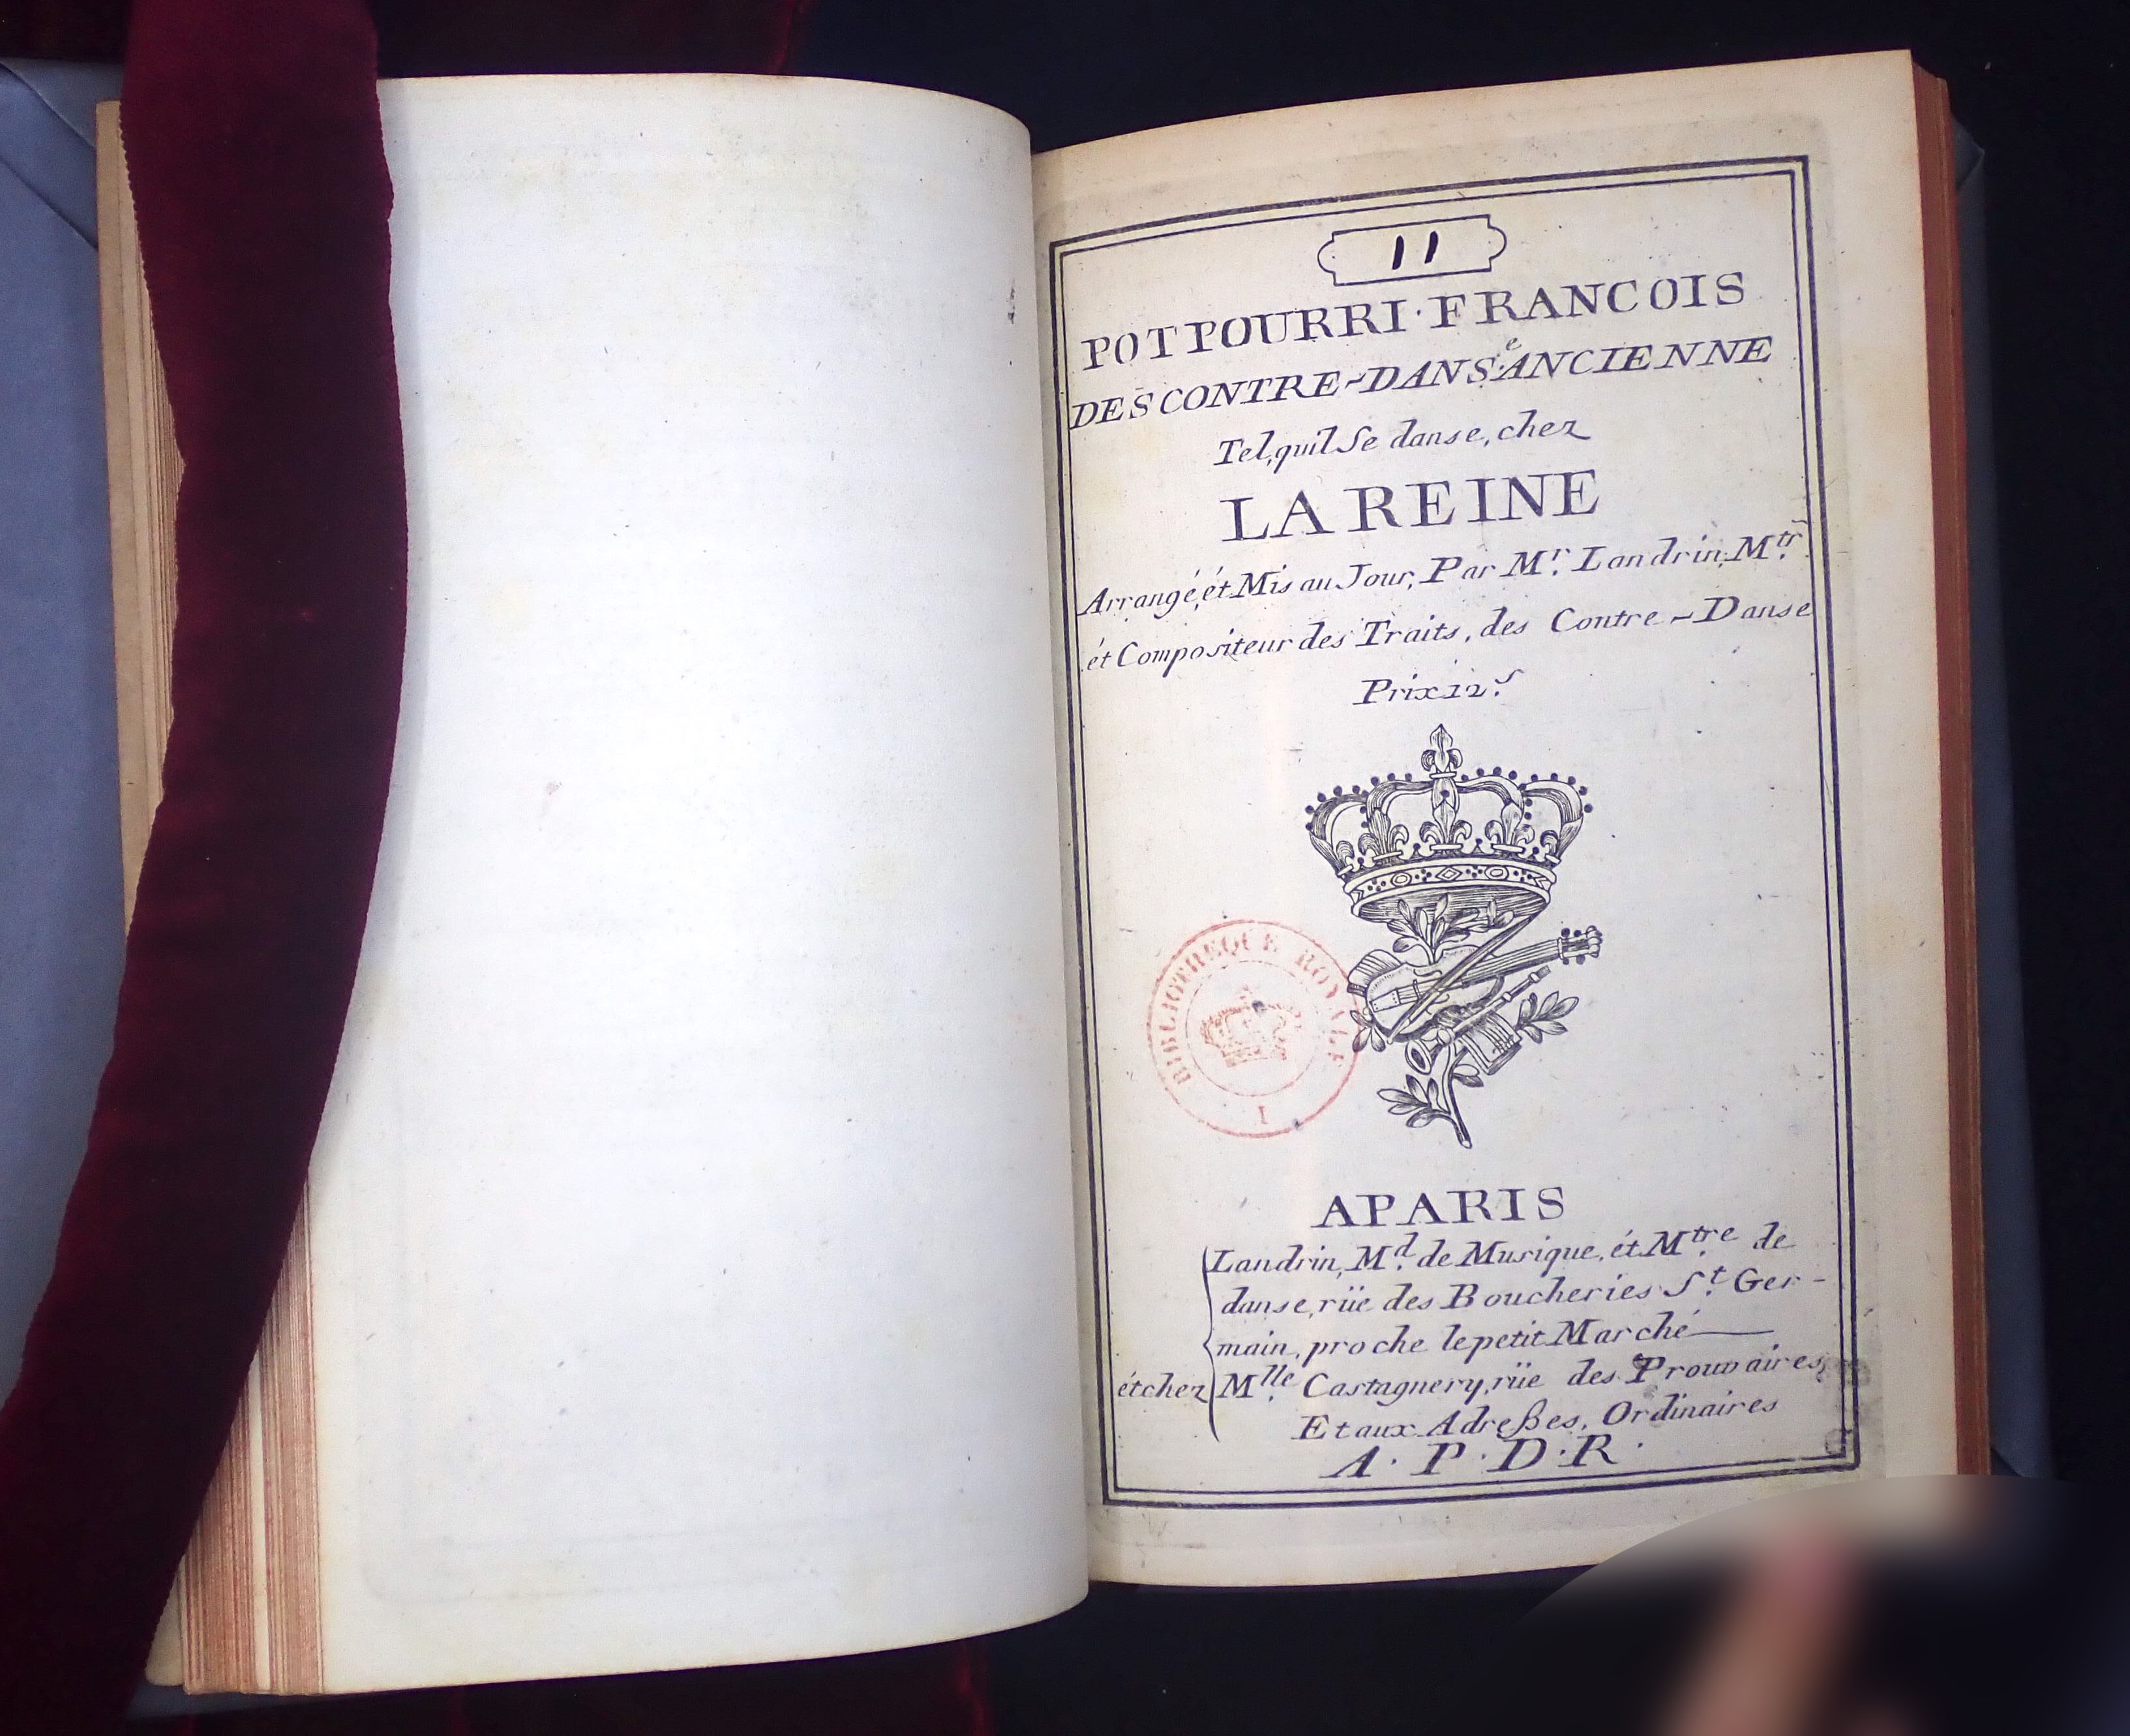 11
POTPOURRI·FRANCOIS
DES CONTRE-DANSᵉ ANCIENNE
Tel, quil Se danse, chez
LA REINE
Arrangé, ét Mis au Jour, Par Mʳ. Landrin, Mᵗʳ.
ét Compositeur des Traits, des Contre-Danse
Prix 12ˢ.
BIBLIOTHEQUE ROYALE
I
A PARIS
Landrin, Mᵈ. de Musique, ét Mᵗʳᵉ. de
danse, rüe des Boucheries Sᵗ. Ger-
main, proche le petit Marché
ét chez Mˡˡᵉ. Castagnery, rüe des Prouvaires,
Et aux Adreßes, Ordinaires
A·P·D·R·